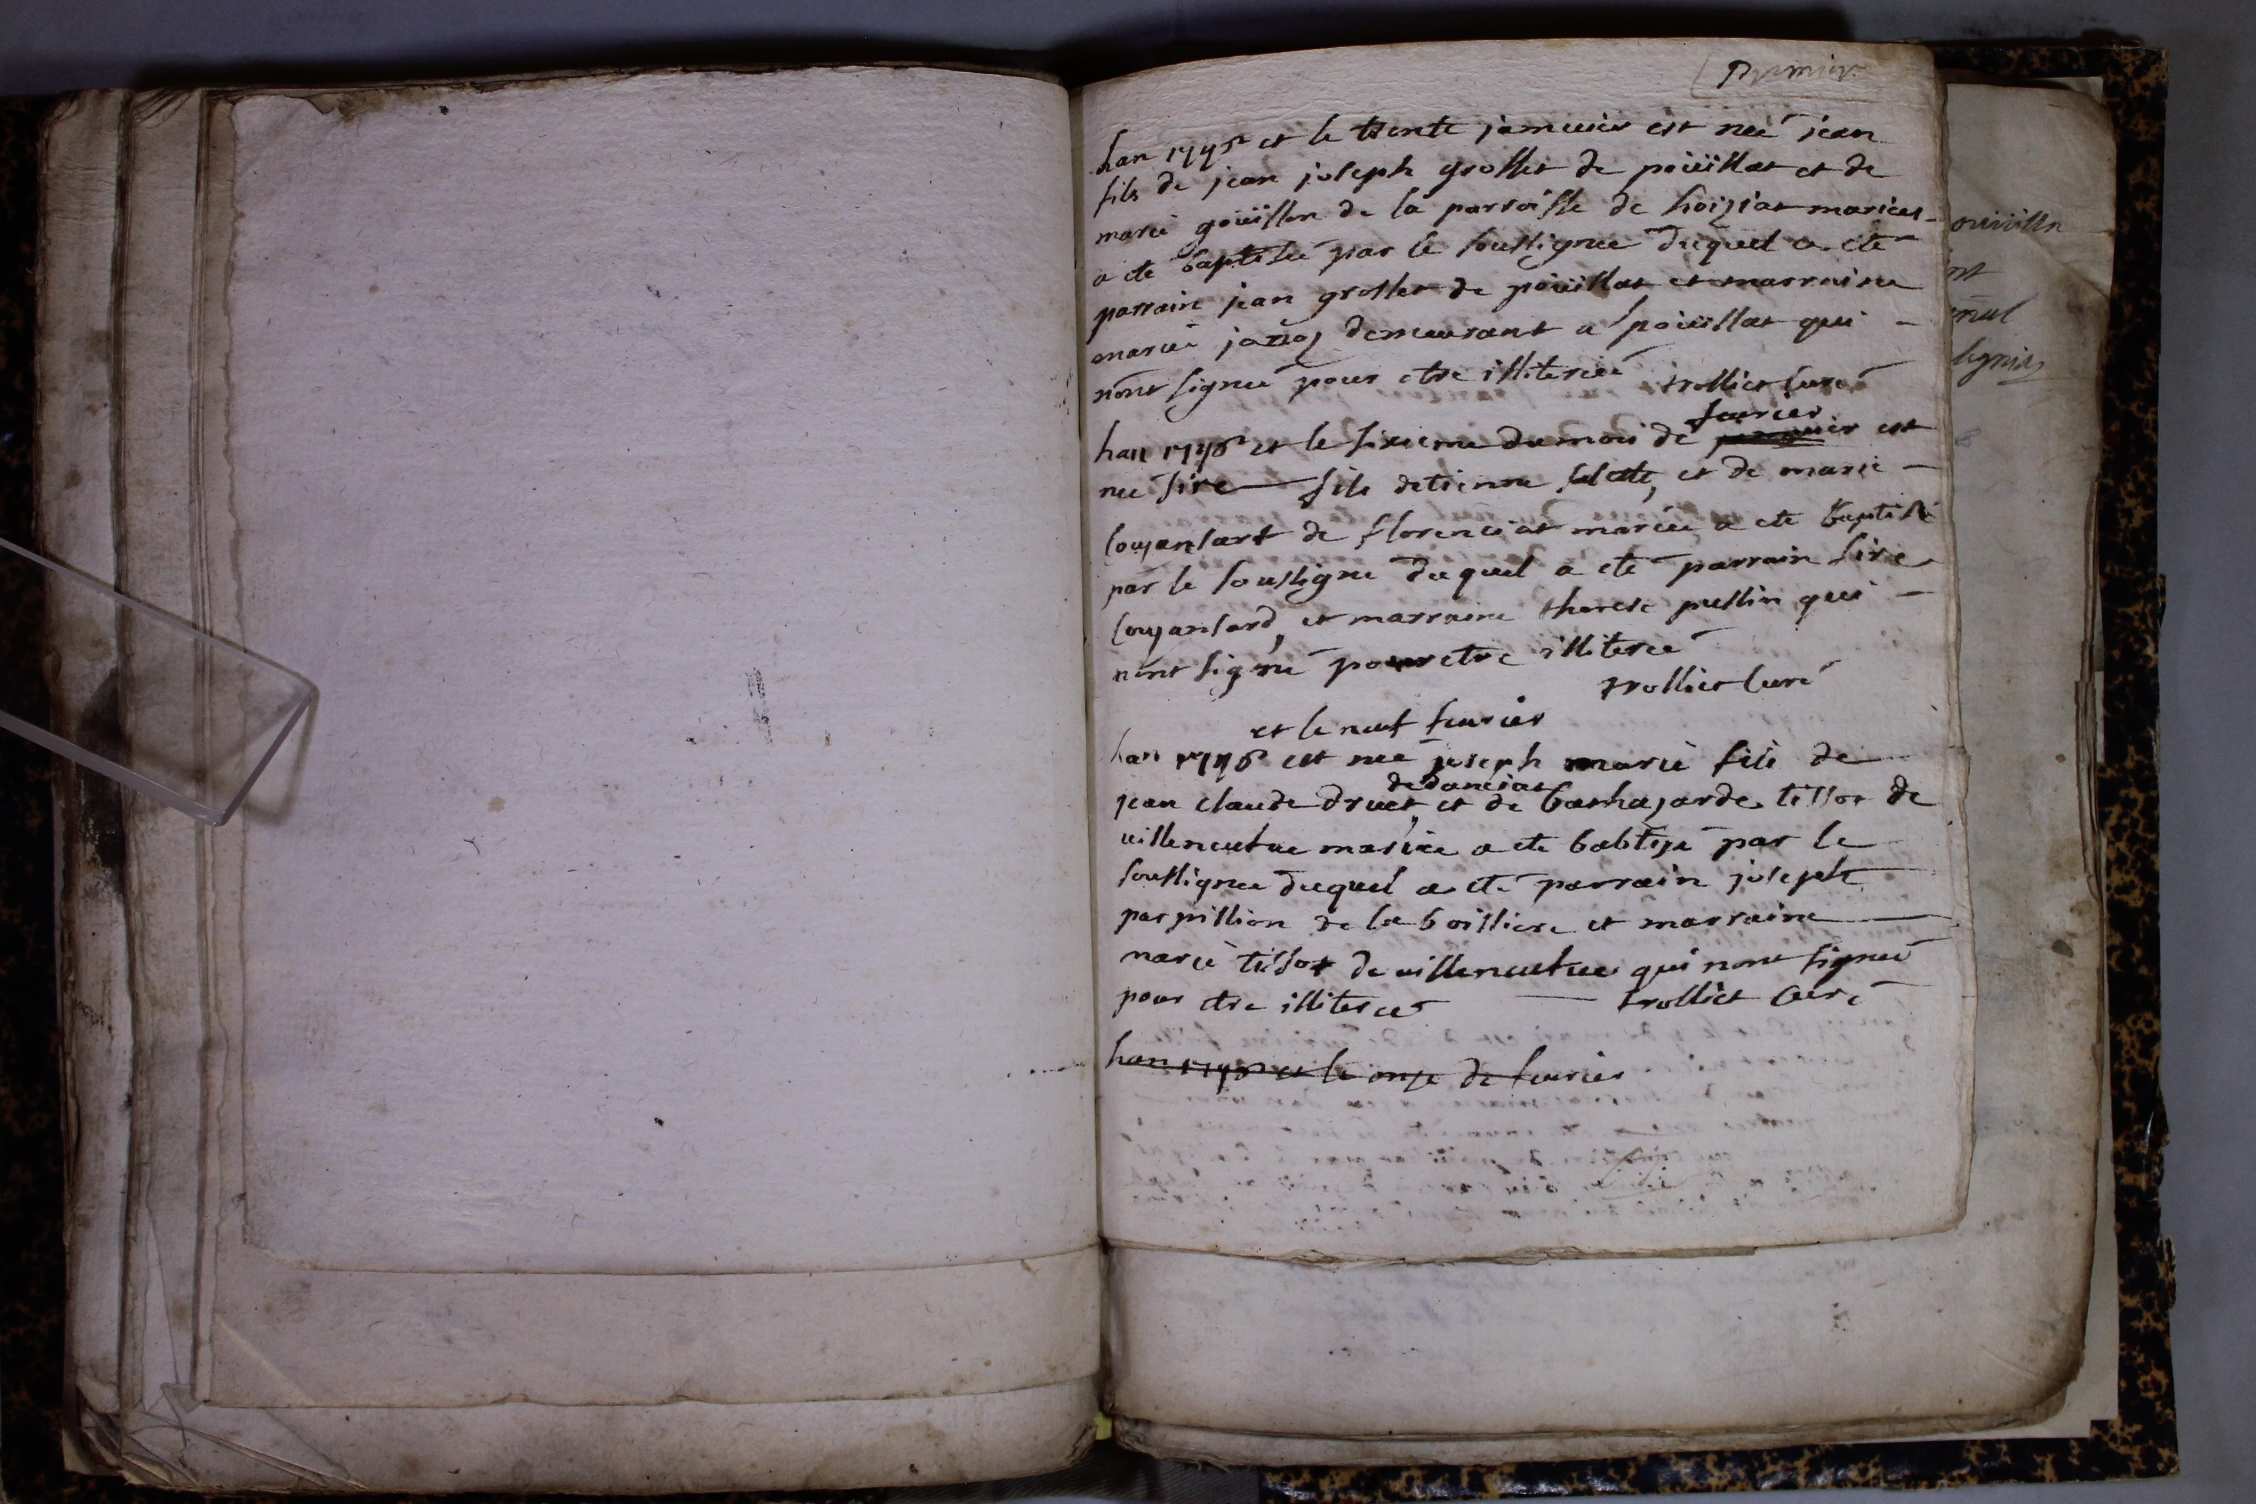 Premier
han 1748 et le trente jamuier est neé jean
fils de jean joseph grosset de poüillat et de
marie goüillon de la parroisse de hoiziat mariées
a eté baptiseé par le soussignee duquel a eté
parrain jean grosset de poüillat et marraine
marie demeurant a poüillat qui
nont signeé pour etre illitereé trolliet Curé
feurier
han 1748 et le sixieme du mois de est
neé sire fils detienne et de marie
Coujansart de florenciat mariée a eté baptisé
par le soussigne duquel a eté parrain sire
Coujansard, et marraine therese pussin qui
nont signé pour etre illitereé
trolliet Curé
et le neuf feurier
han 1748 est neé joseph marie fils de
de danciat
jean claude druet, et de bathazarde tissot de
uilleneutue mariée a eté babtizé par le
soussignee duquel a eté parrain joseph
parpillion de la boissiere et marraine
marie tissot de uilleneutue qui nont signeé
pour etre illitereé trolliet Curé
han 1748 et le onze de feurier
ouüilln